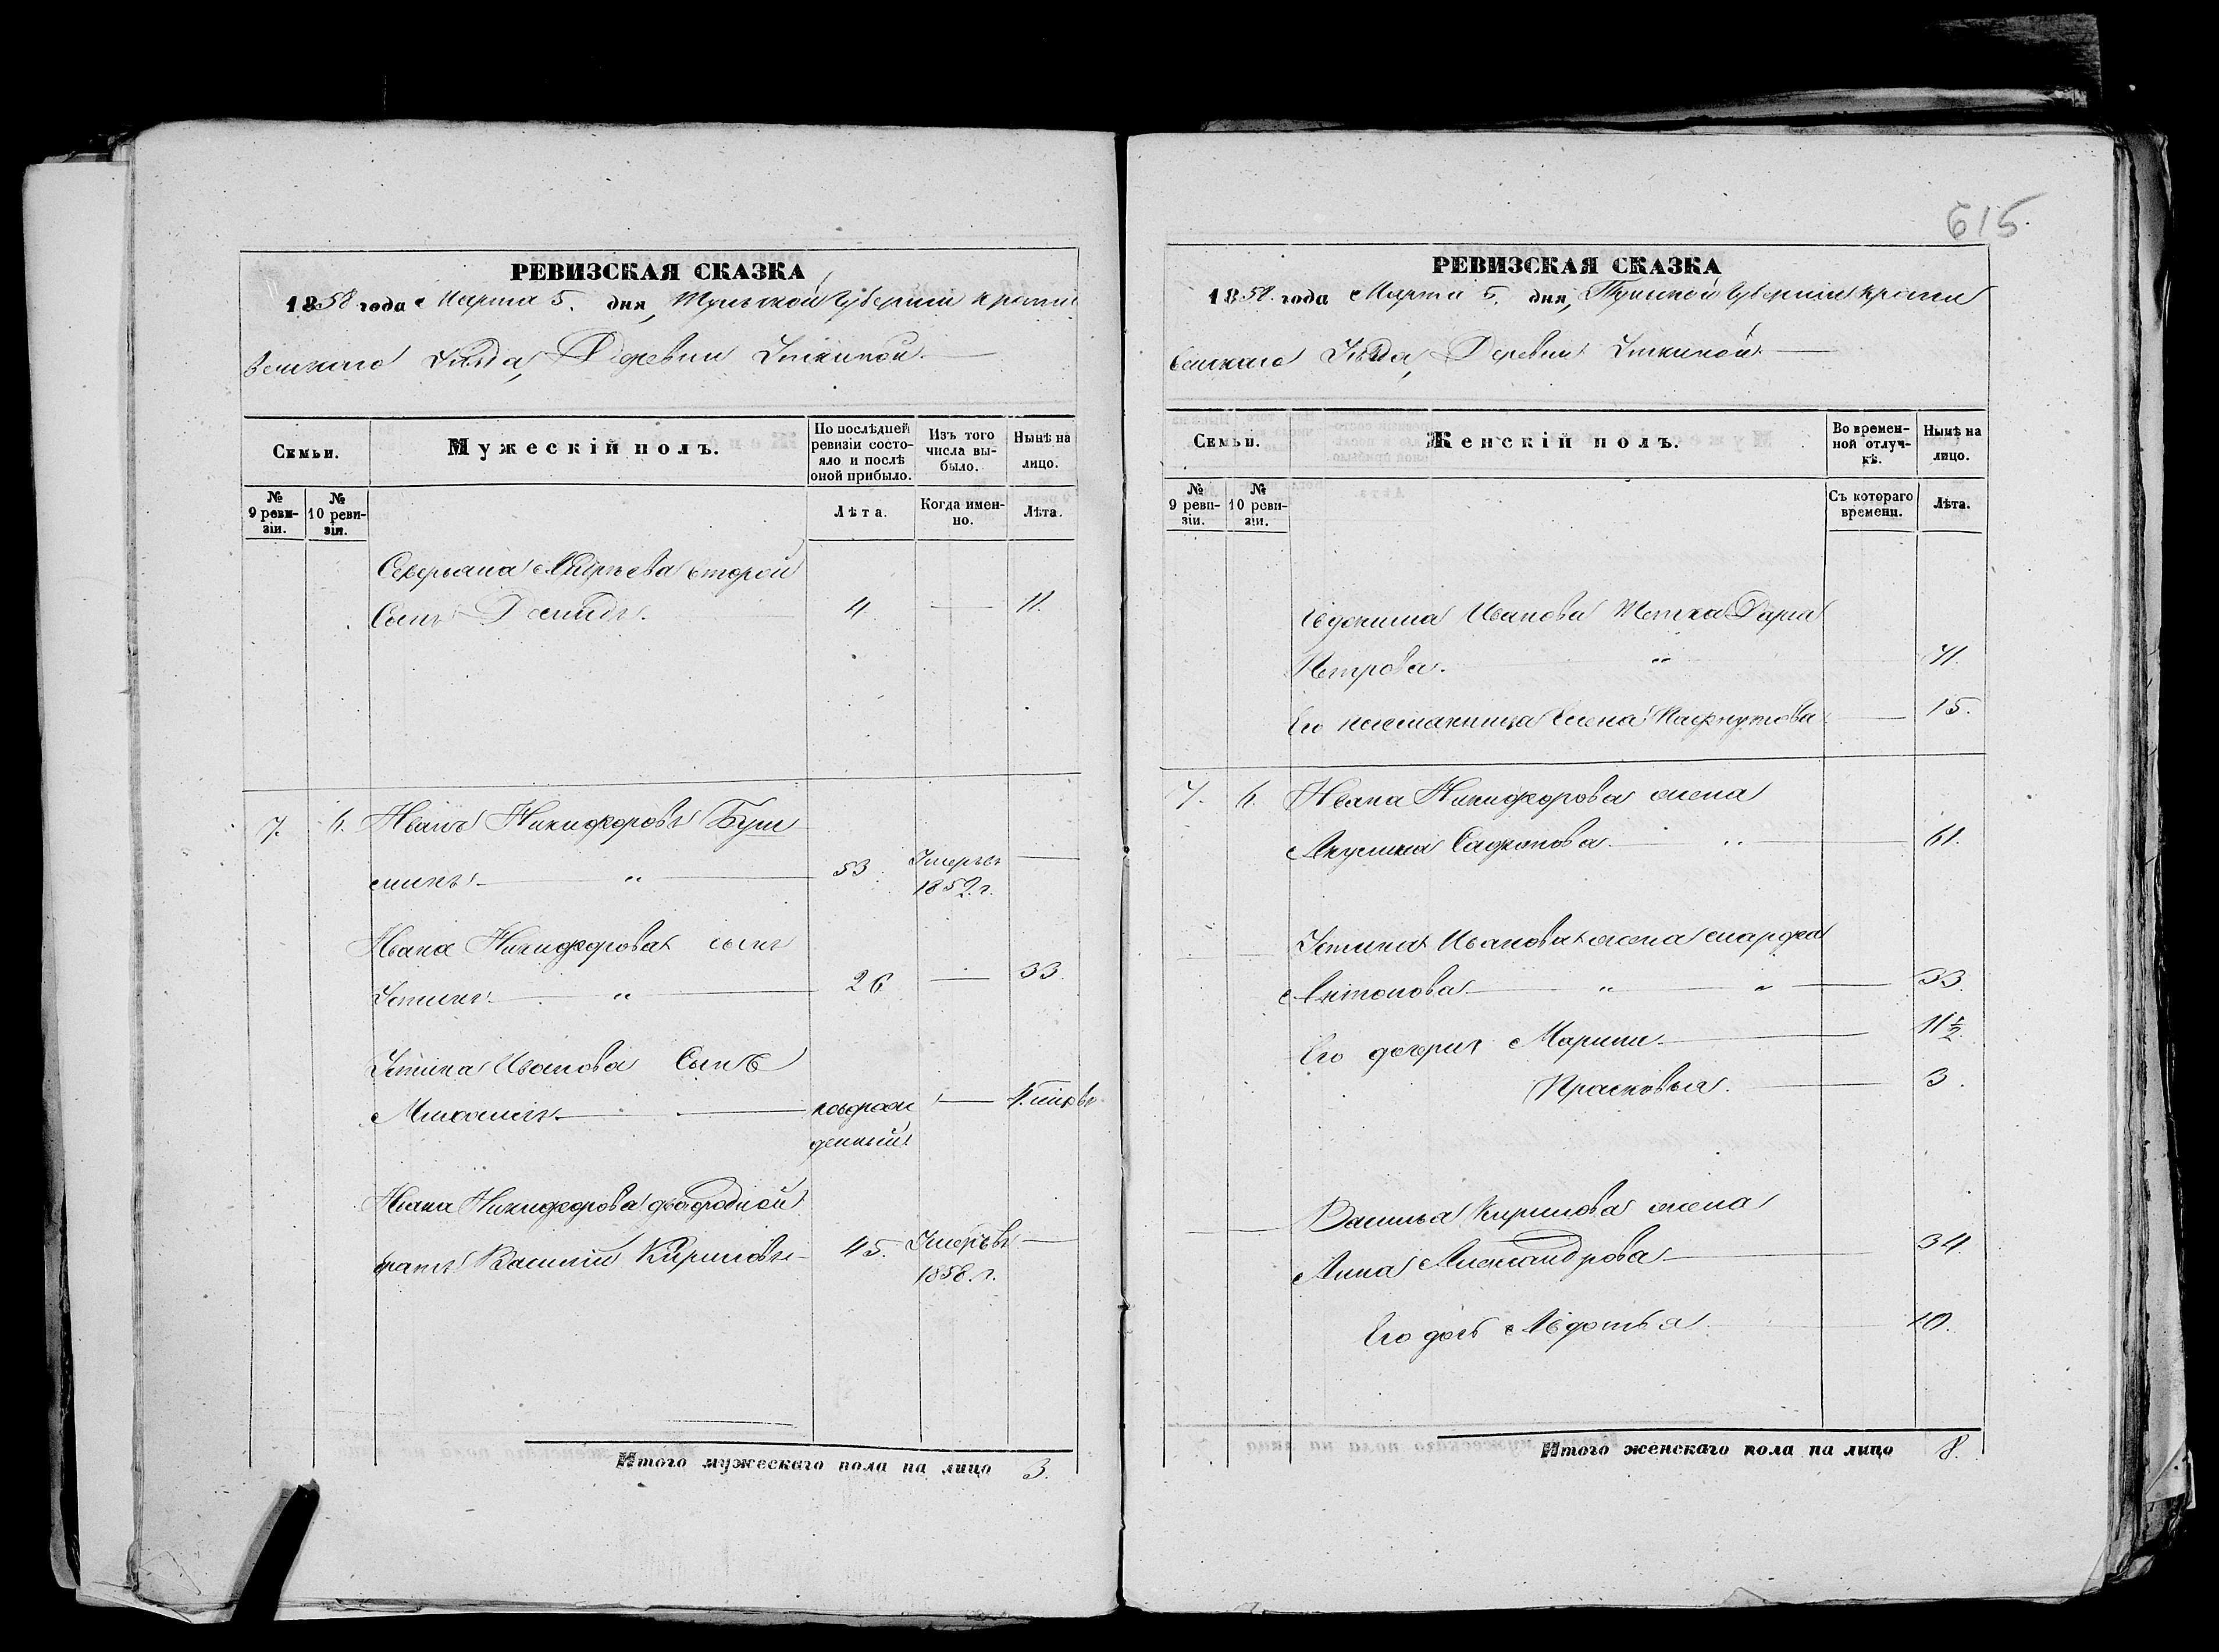 615.
РЕВИЗСКАЯ СКАЗКА
1858 года Марта 5. дня, Тульской Губернии Крапи
венскаго Уѣзда, Деревни
Семьи.
Мужескій полъ.
По послѣдней ревизіи состо-
яло и послѣ
оной прибыло.
Изъ того
числа вы-
было.
Нынѣ на
лицо.
№
9 реви-
зіи.
№
10 реви-
зіи.
Лѣта.
Когда имен-
но.
Лѣта.
Северьяна второй
Сынъ Демидъ. 4. — 11.
7. 6. Иванъ Никифоровъ Бул
53. Умеръ въ —
1852. г.
Ивана Никифорова сынъ
Устинъ. „ 26 — 33.
Устина Иванова Сынъ
Михаилъ. новорож — 4.
денный
Ивана Никифорова двоюродной
братъ Василій Кириловъ 45. Умеръ въ —
1858. г.
Итого мужескаго пола на лицо 3.
РЕВИЗСКАЯ СКАЗКА
1858. года Марта 5. дня, Тульской Губерніи Крапи
венскаго Уѣзда, Деревни
Семьи.
Женскій полъ.
Во времен-
ной отлуч-
кѣ.
Нынѣ на
лицо.
№
9 реви-
зіи.
№
10 реви-
зіи.
Съ котораго
времени.
Лѣта.
Иванова Тетка Дарья
Петрова. „ 71.
Его племянница Елена Пафнутова — 15.
7. 6. Ивана Никифорова жена
Акулина Сафонова. „ 61.
Устина Иванова жена Марфа
Антонова „ „ 33.
Его дочери Марина 11½
Прасковья. 3.
Василья Кирилова жена
Анна Александрова. 34.
Его дочь Авдотья 10.
Итого женскаго пола на лицо 8.